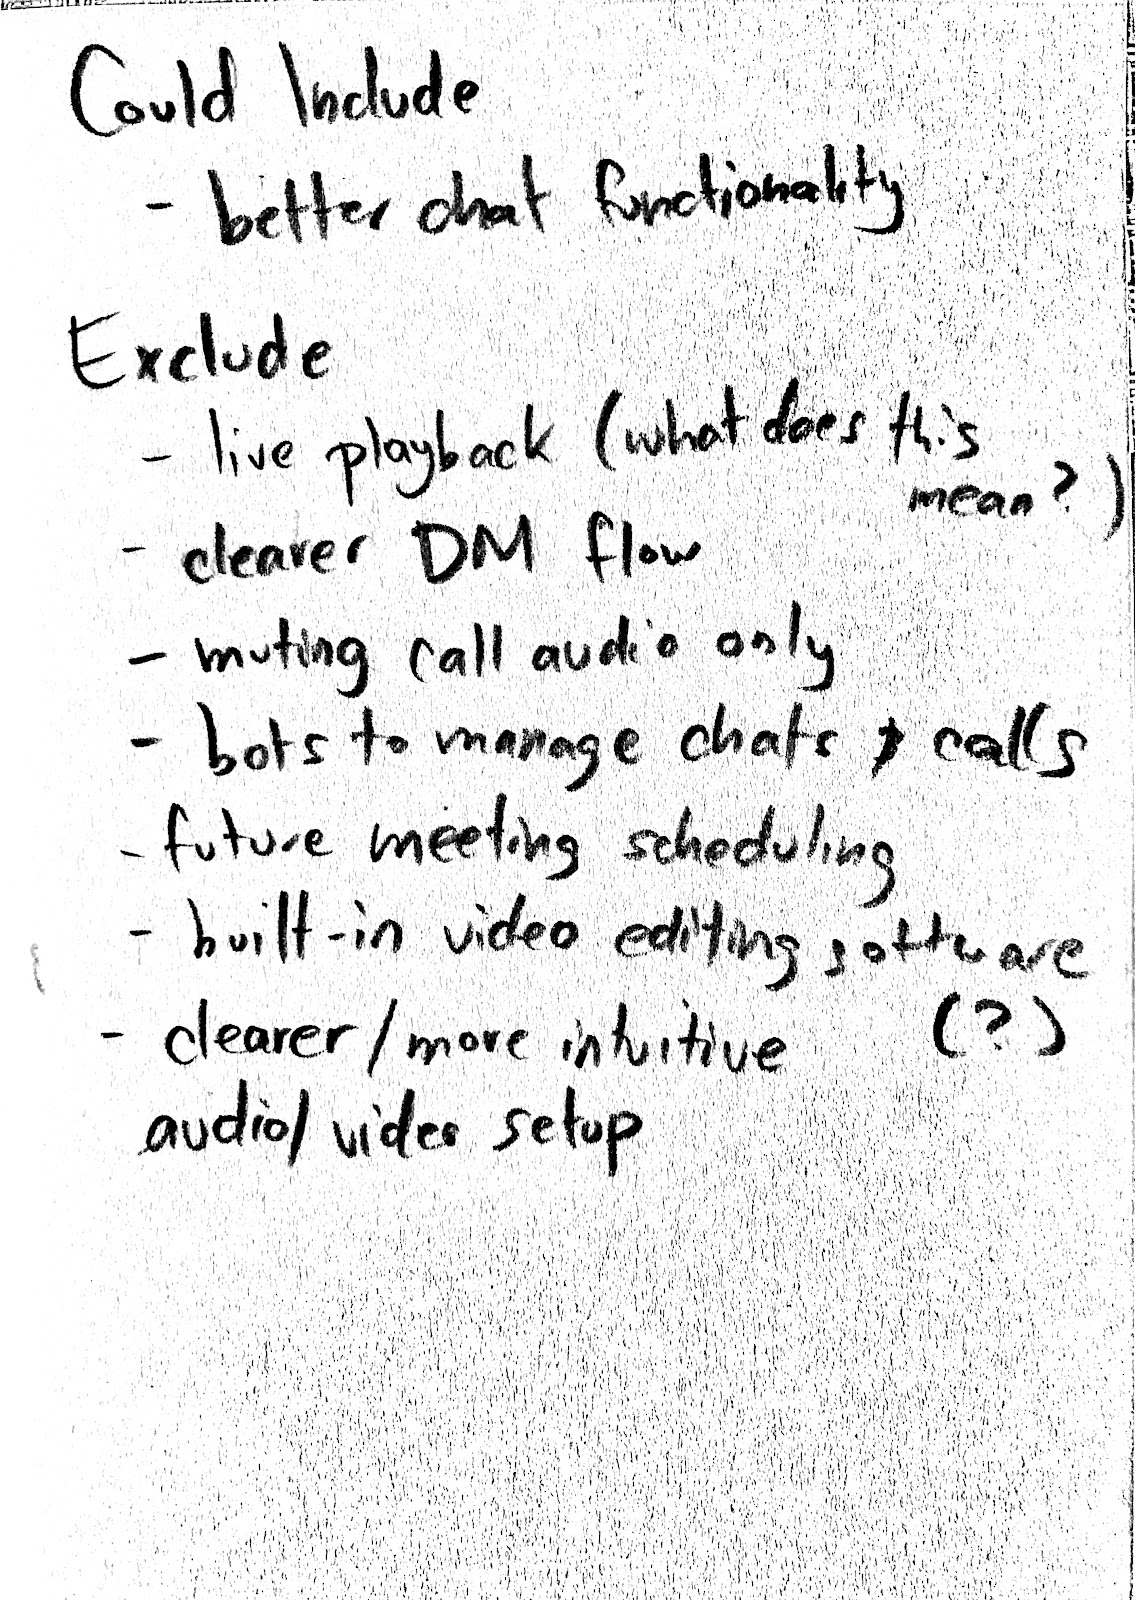 Could Include
- better chat functionality
Exclude
- live playback (what does this
mean?)
- clearer DM flow
- muting call audio only
- bots to manage chats + calls
- future meeting scheduling
- built-in video editing software
(?)
- clearer/more intuitive
audio/video setup